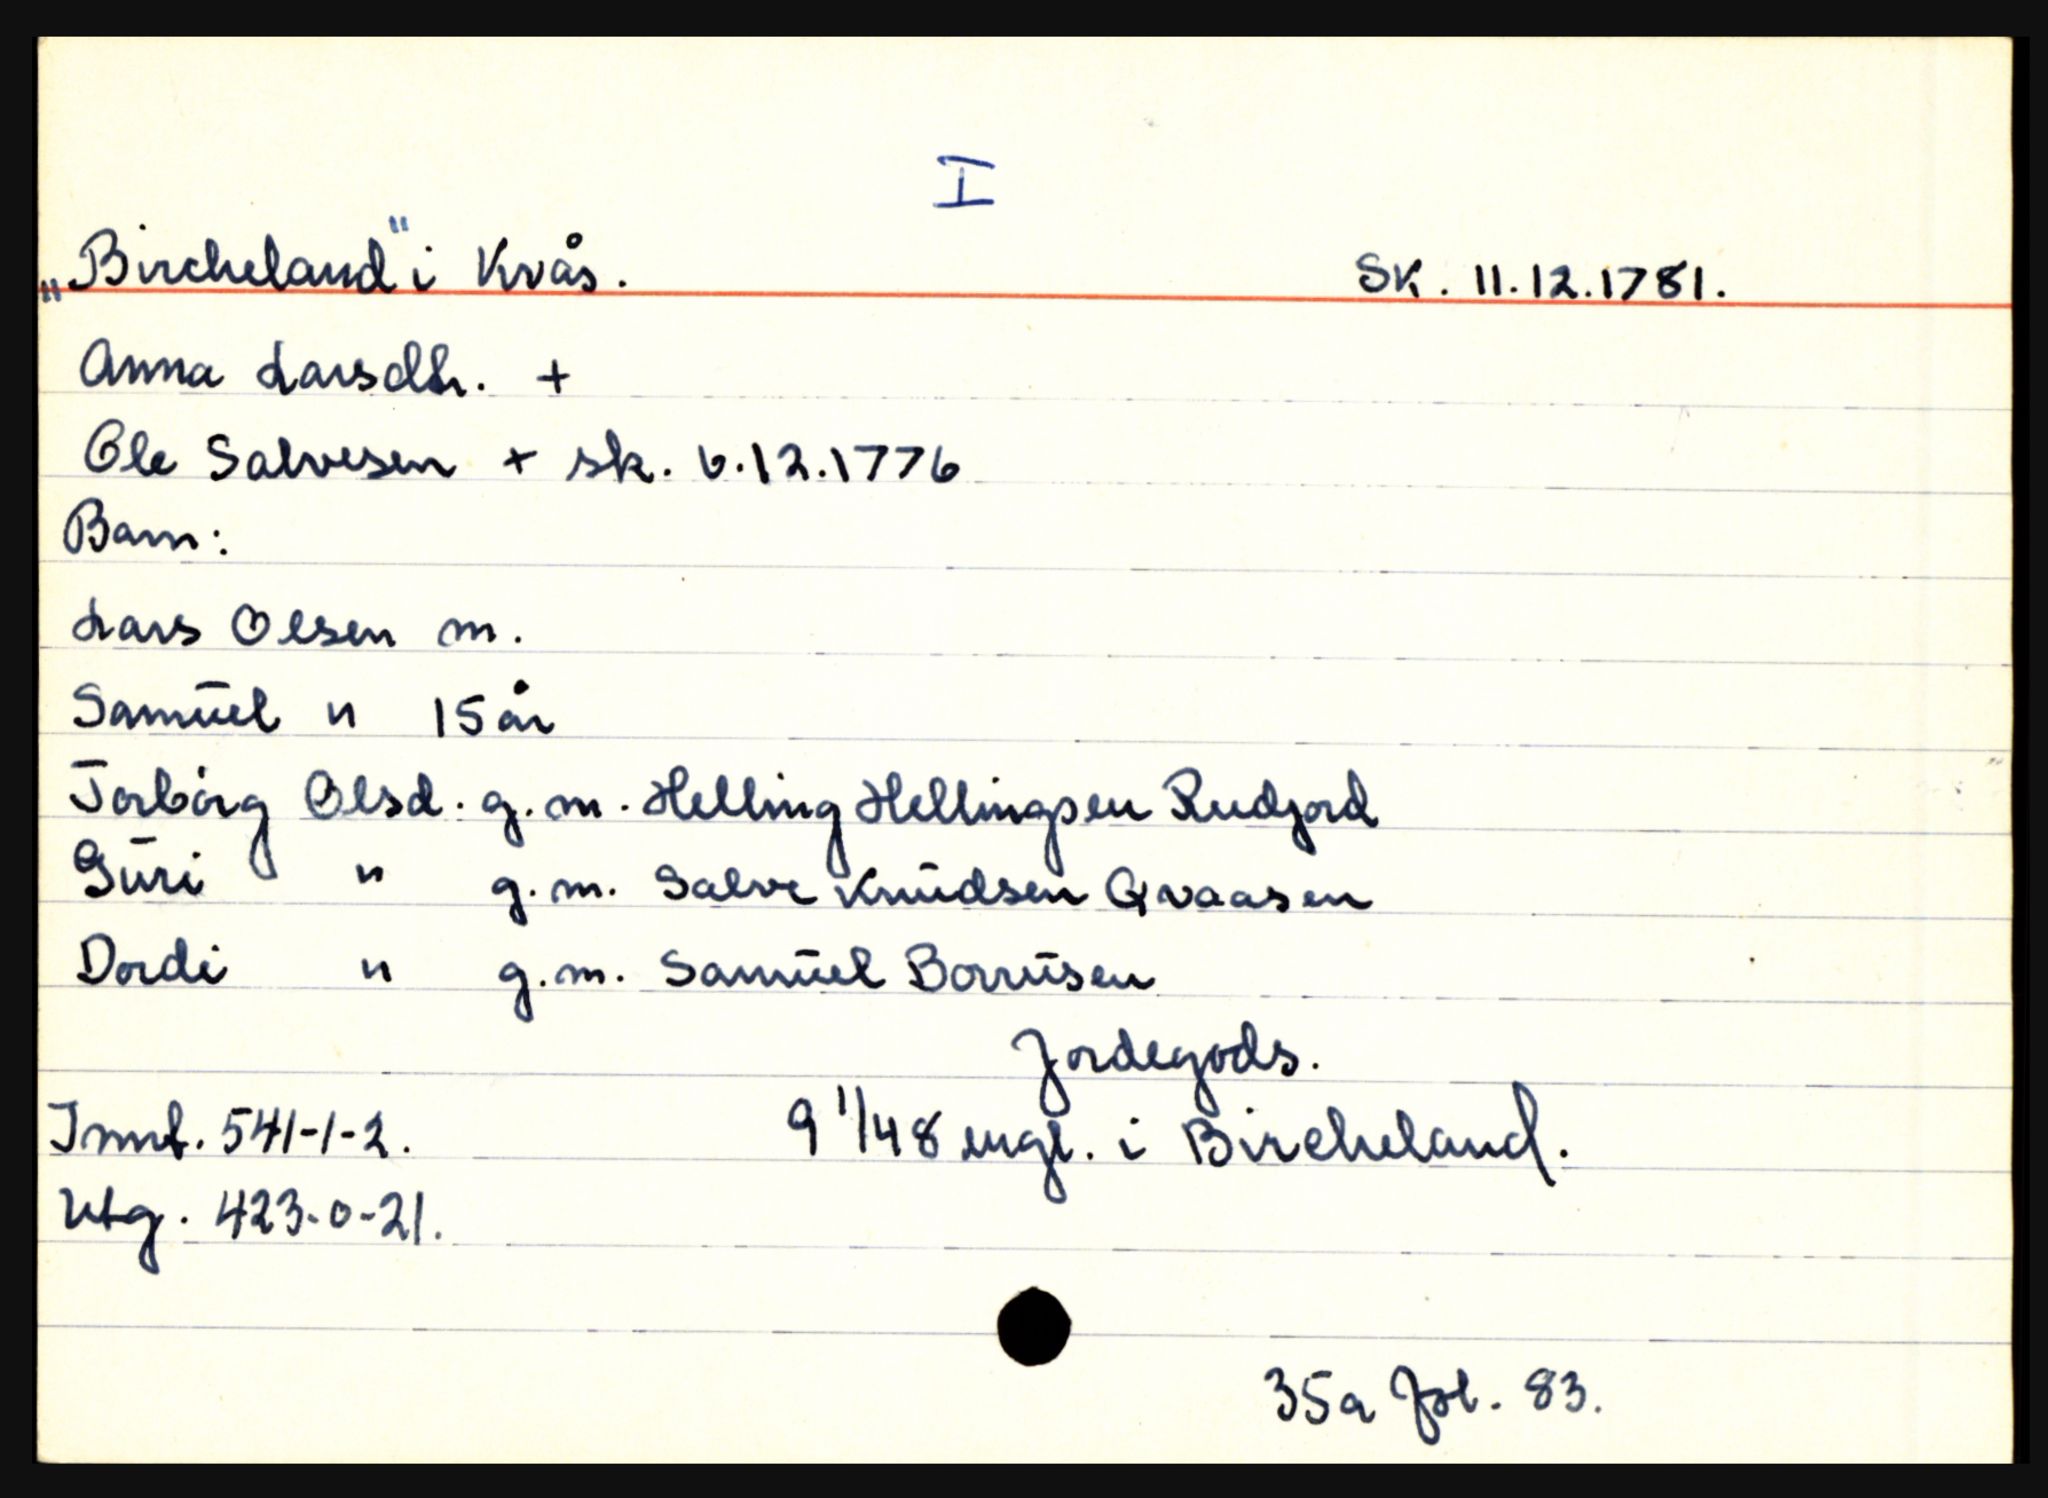 I
„Bircheland" i Kvås. SK. 11.12.1781.
Anna Larsdtr. +
Ole Salvesen + sk. 6.12.1776
Barn:
Lars Olsen m.
Samuel " 15 år
Torborg Olsd. g.m. Helling Hellingsen Rudjord
Guri " g.m. Salve Knudsen Qvaasen
Dordi " g.m. Samuel Borrusen
Jordegods.
Innt. 541-1-2. 9 1/48 engl. i Bircheland.
Utg. 423-0-21.
35a fol. 83.